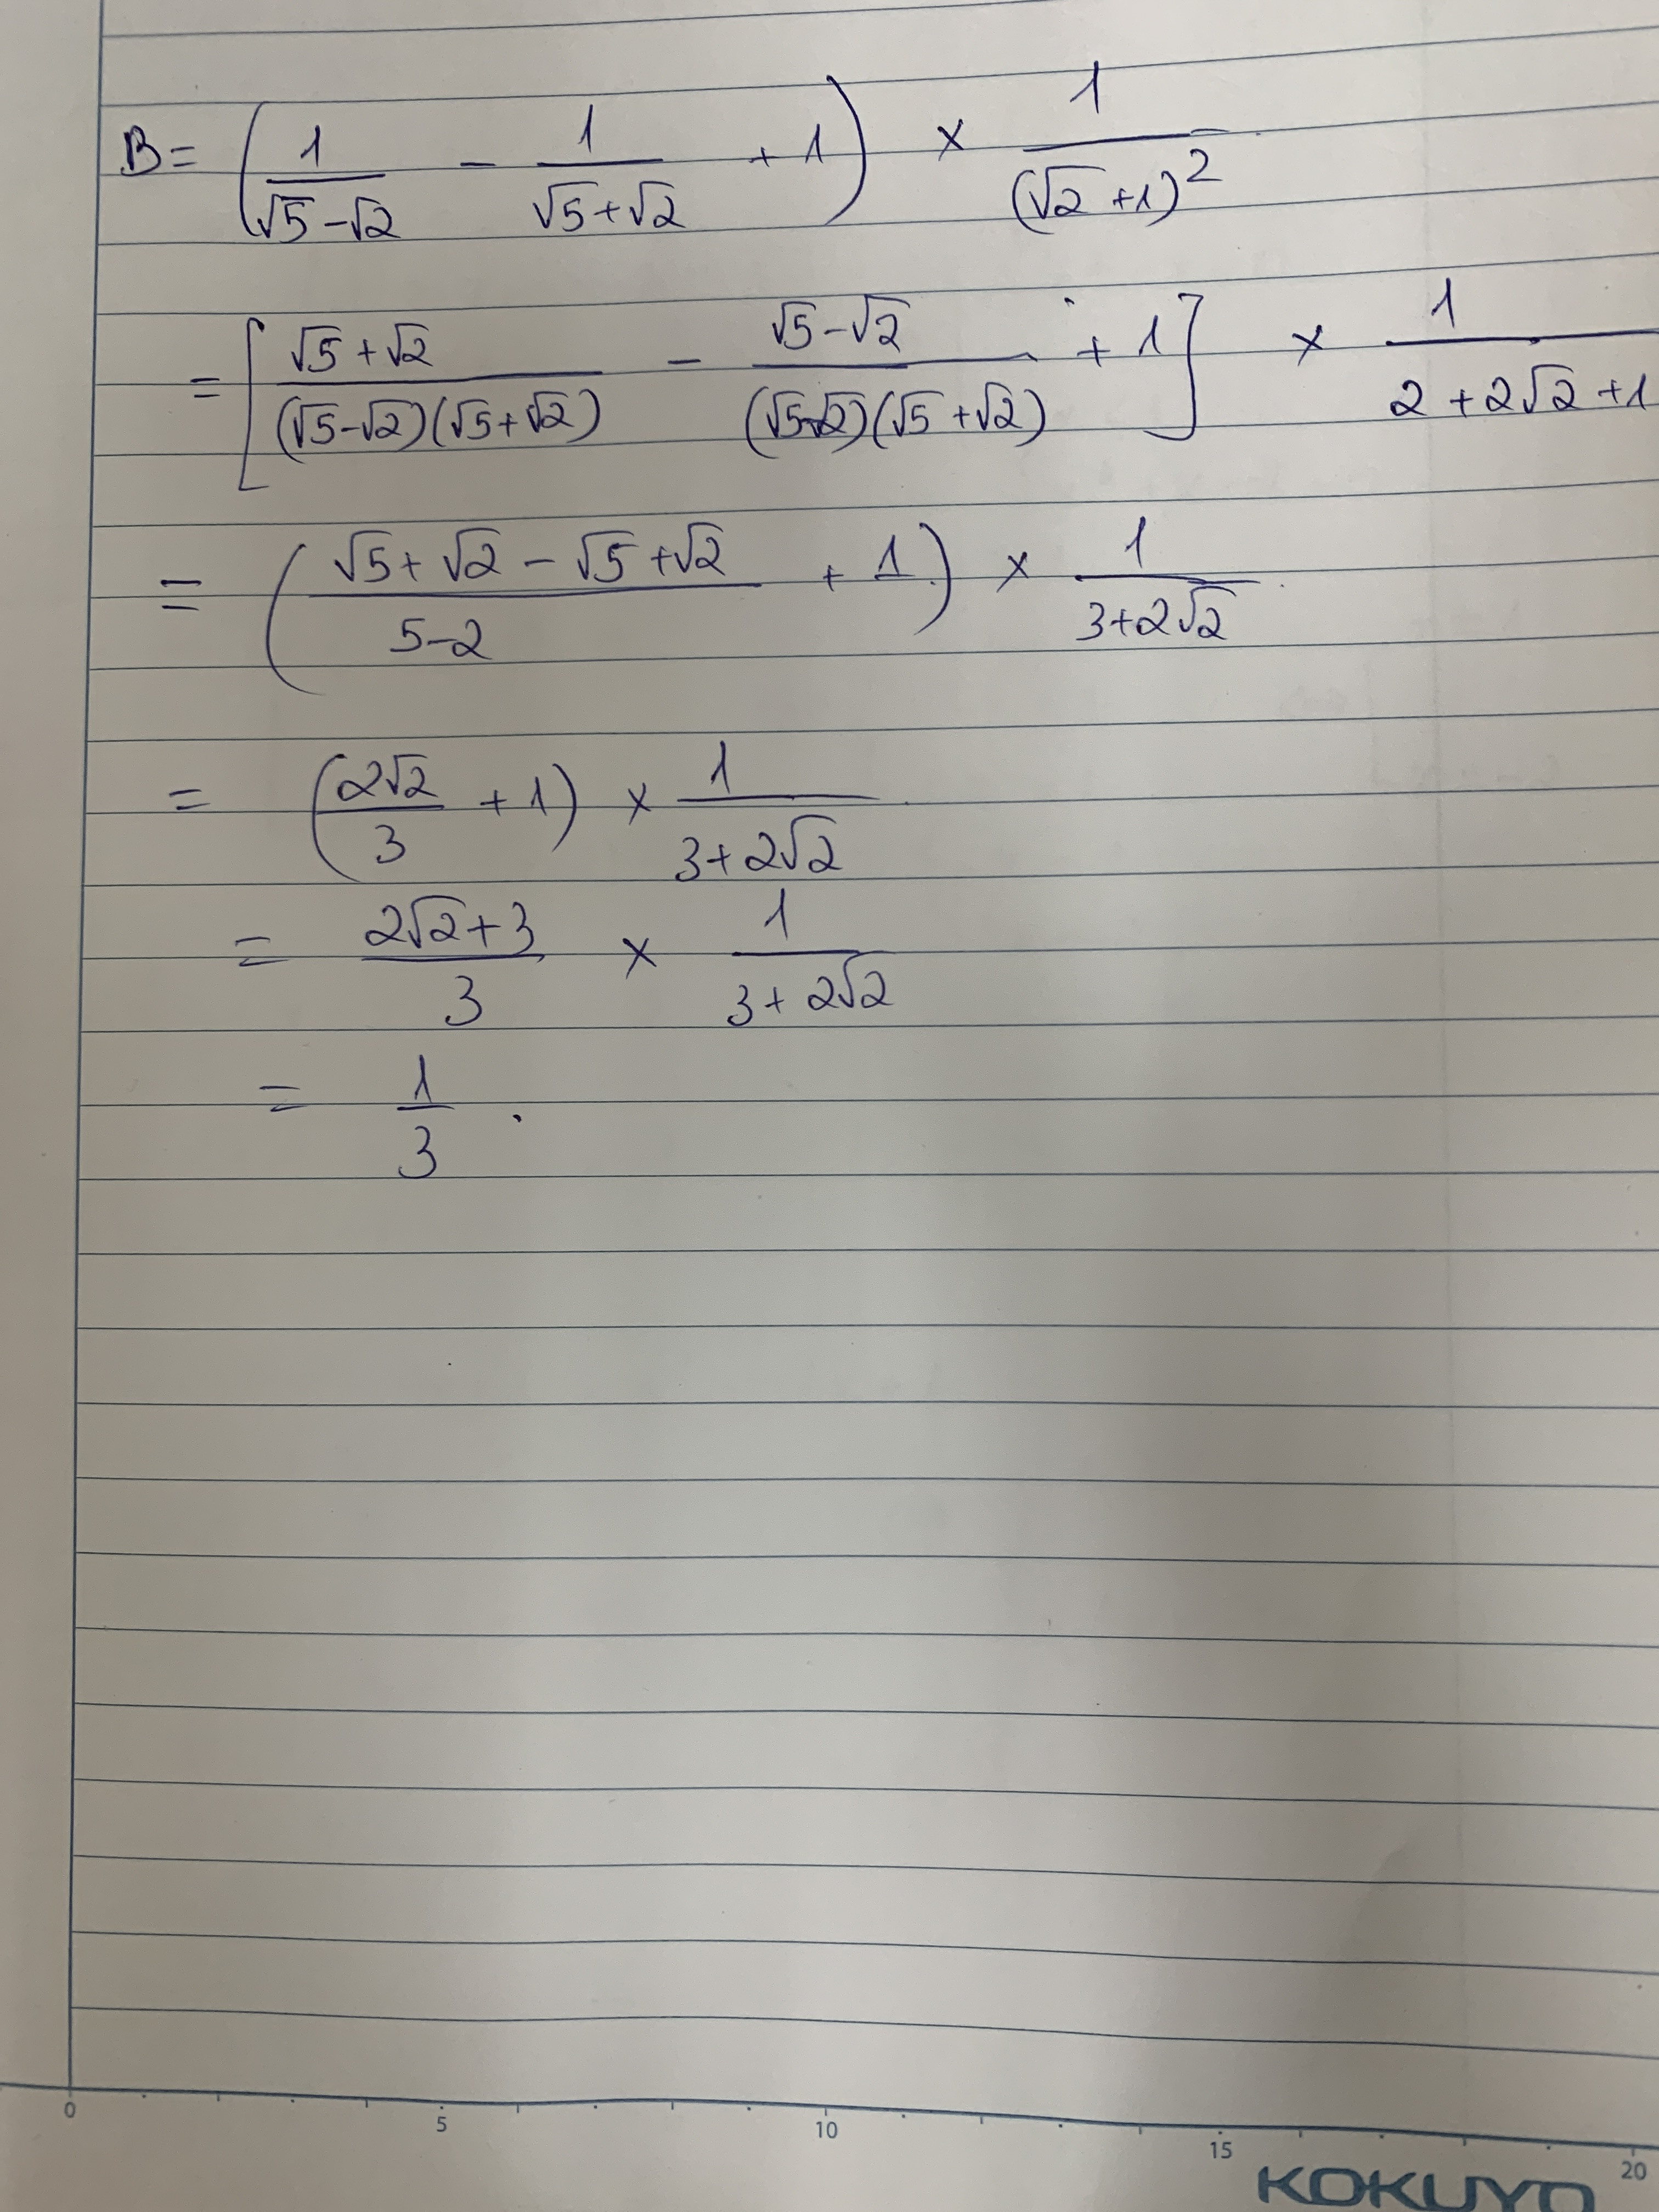 B = (1/(√5-√2) - 1/(√5+√2) + 1) × 1/(√2+1)²
= [(√5+√2)/((√5-√2)(√5+√2)) - (√5-√2)/((√5-√2)(√5+√2)) + 1] × 1/(2+2√2+1)
= ((√5+√2-√5+√2)/(5-2) + 1) × 1/(3+2√2)
= (2√2/3 + 1) × 1/(3+2√2)
= (2√2+3)/3 × 1/(3+2√2)
= 1/3 .
0 5 10 15 20
KOKUYO